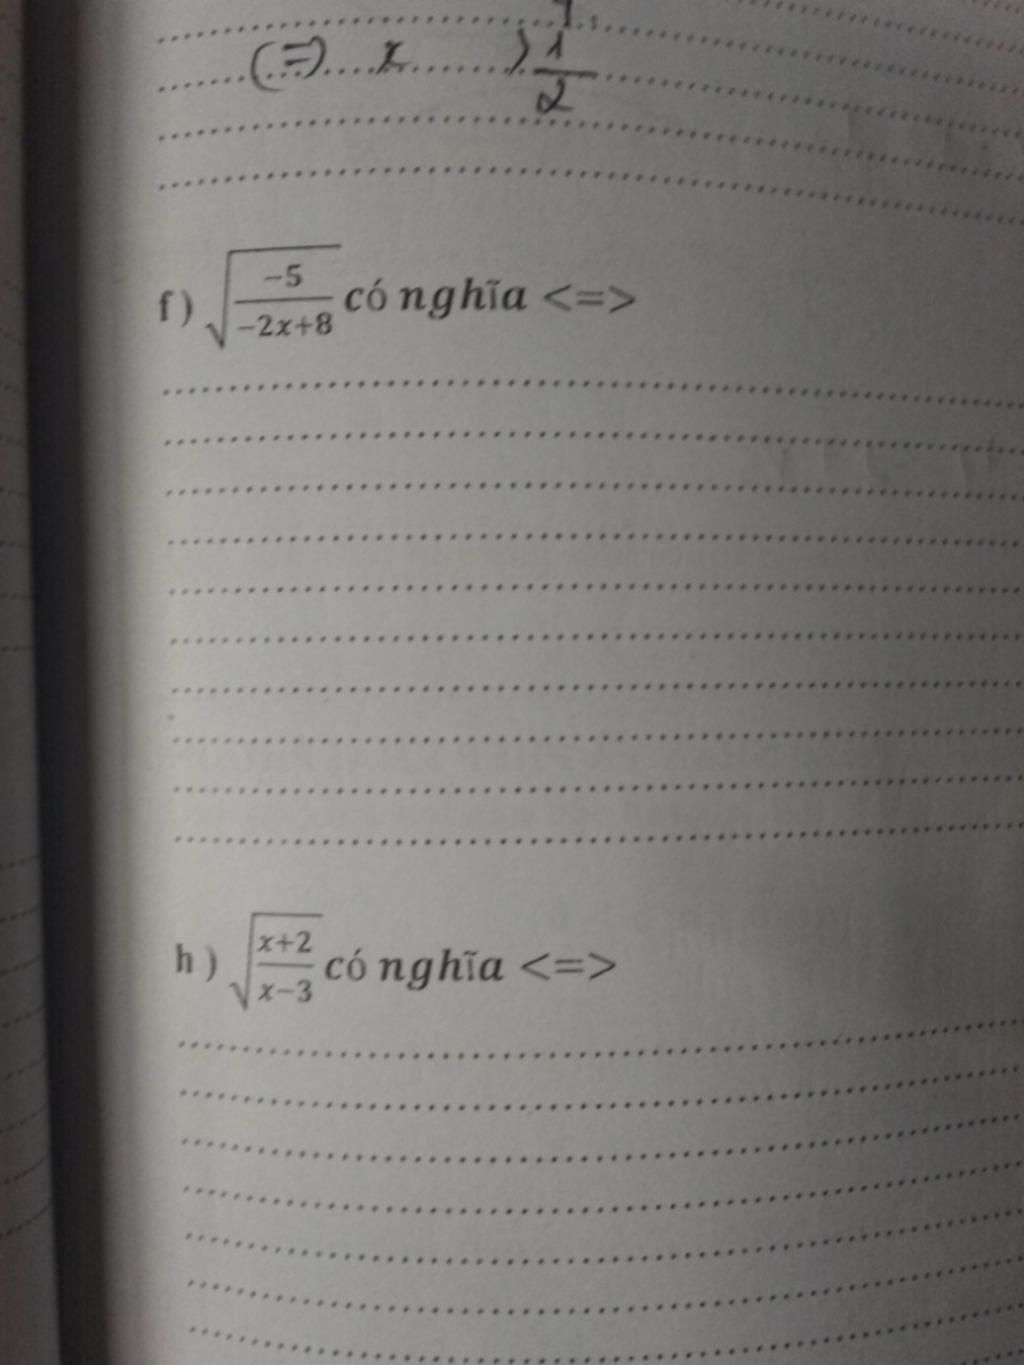 (=) x > 1/2
f) √(-5/(-2x+8)) có nghĩa <=>
h) √((x+2)/(x-3)) có nghĩa <=>